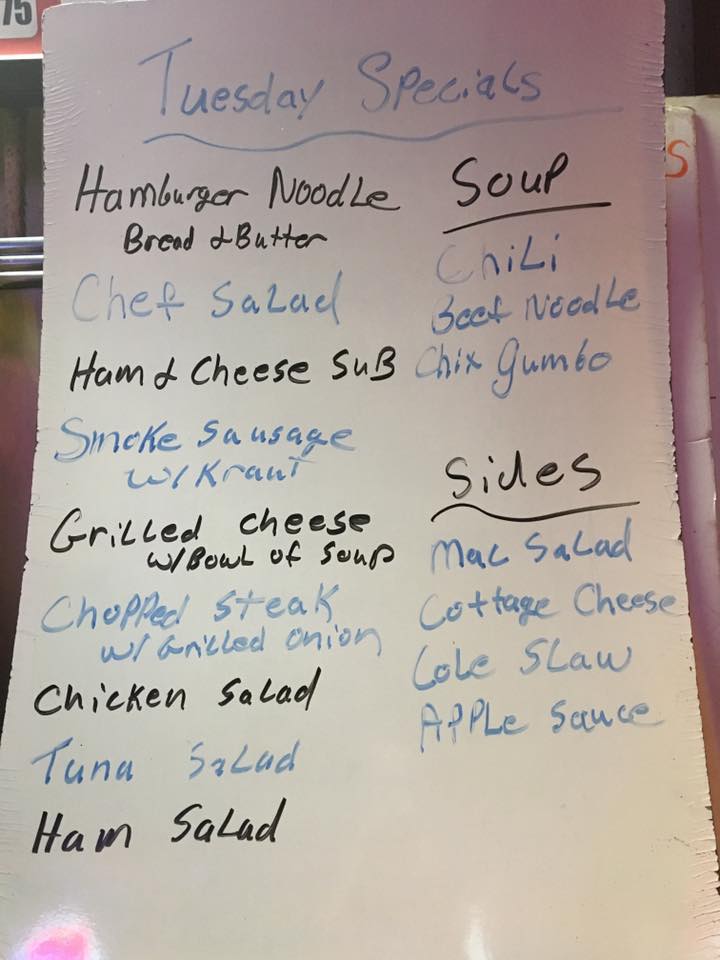 75
Tuesday Specials
Hamburger Noodle
Bread & Butter
Chef Salad
Ham & Cheese Sub
Smoke Sausage
w/ Kraut
Grilled Cheese
w/ Bowl of Soup
Chopped Steak
w/ Grilled Onion
Chicken Salad
Tuna Salad
Ham Salad
Soup
Chili
Beef Noodle
Chix Gumbo
Sides
Mac Salad
Cottage Cheese
Cole Slaw
Apple Sauce
S